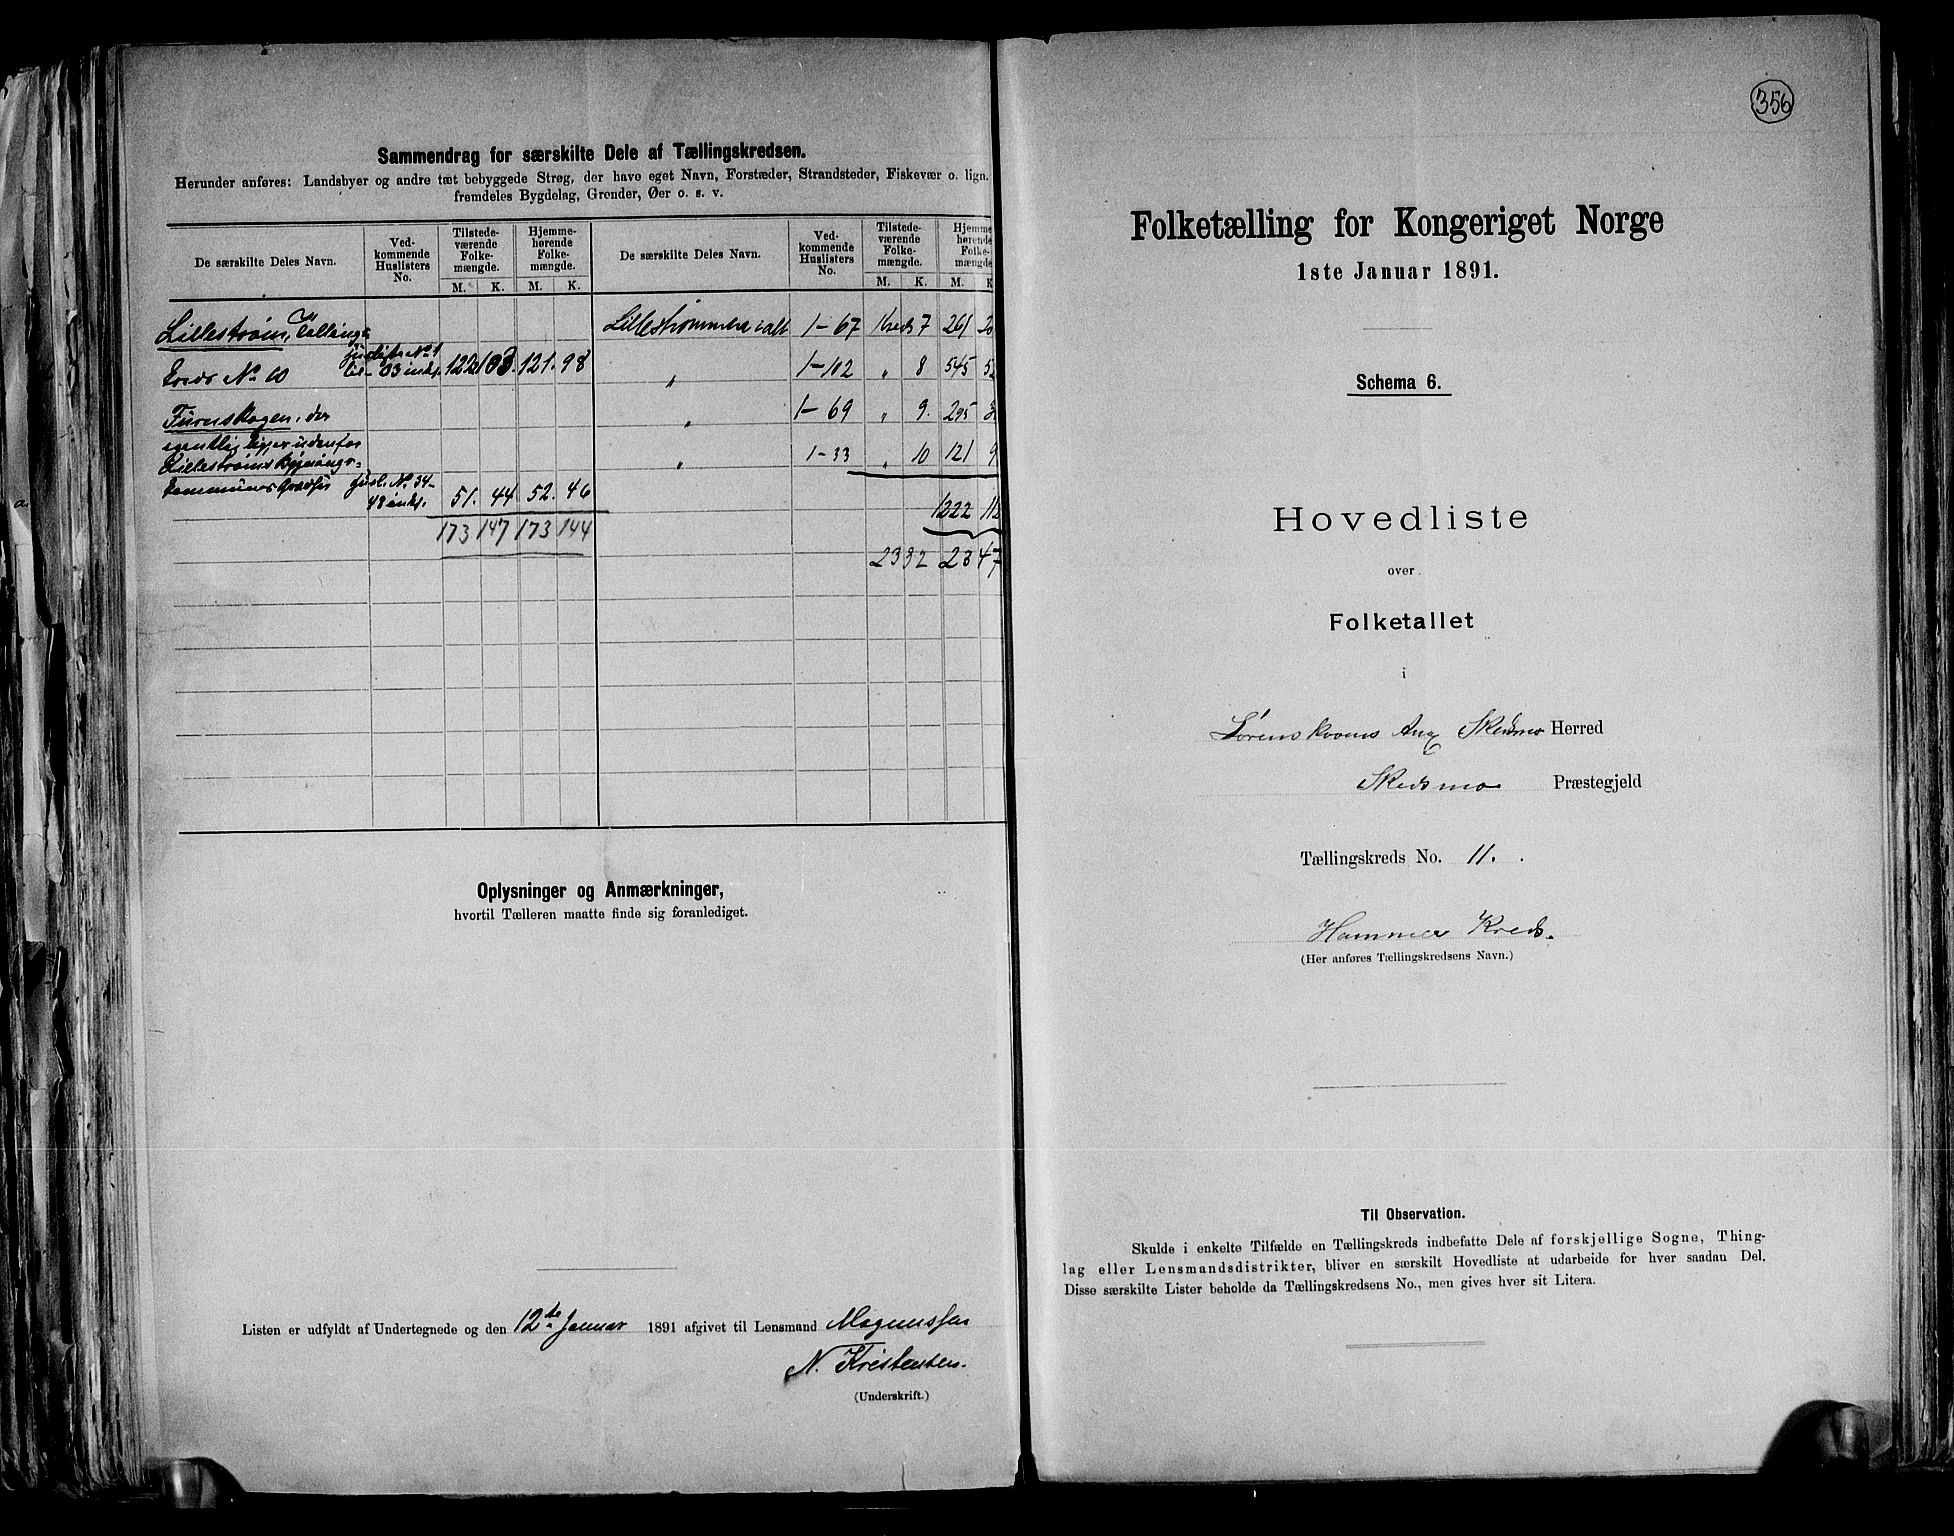 Sammendrag for særskilte Dele af Tællingskredsen.
Herunder anføres: Landsbyer og andre tæt bebyggede Strøg, der have eget Navn, Forstæder, Strandsteder, Fiskevær o. lign.
fremdeles Bygdelag, Grender, Øer o. s. v.
De særskilte Deles Navn. Ved-kommende Huslisters No. Tilstede-værende Folke-mængde. Hjemme-hørende Folke-mængde. De særskilte Deles Navn. Ved-kommende Huslisters No. Tilstede-værende Folke-mængde. Hjemme-hørende Folke-mængde
M. K. M. K. M. K. M. K
Lillestrøm, Tællings- Lillestrømmen ialt 1-67 Kreds 7 261
Husliste No 1
kreds No 10 til 33 inkl. 122 103. 121. 98 " 1-102 " 8 545
Furuskogen, der " 1-69 " 9. 295
egentlig ligger udenfor
Lillestrøms Bygnings- " 1-33 " 10 121
kommunes Grændser Husl. No. 34-
48 inkl. 51. 44 52. 46 1222
173 147 173 144
2332 2347
Oplysninger og Anmærkninger,
hvortil Tælleren maatte finde sig foranlediget.
Listen er udfyldt af Undertegnede og den 12te Januar 1891 afgivet til Lensmand Magnussen
N. Kristensen.
(Underskrift.)
356
Folketælling for Kongeriget Norge
1ste Januar 1891.
Schema 6.
Hovedliste
over
Folketallet
i
Lørenskovens Anx Skedsmo Herred
Skedsmo Præstegjeld
Tællingskreds No. 11.
Hammer Kreds.
(Her anføres Tællingskredsens Navn.)
Til Observation.
Skulde i enkelte Tilfælde en Tællingskreds indbefatte Dele af forskjellige Sogne, Thing-
lag eller Lensmandsdistrikter, bliver en særskilt Hovedliste at udarbeide for hver saadan Del.
Disse særskilte Lister beholde da Tællingskredsens No., men gives hver sit Litera.